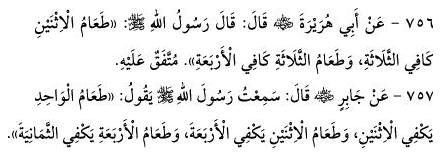 ٧٥٦ - عَنْ أَبِي هُرَيْرَةَ ﵁ قَالَ: قَالَ رَسُولُ اللهِ ﷺ: «طَعَامُ الْاِثْنَيْنِ
كَافِي الثَّلَاثَةِ، وَطَعَامُ الثَّلَاثَةِ كَافِي الْأَرْبَعَةِ». مُتَّفَقٌ عَلَيْهِ.
٧٥٧ - عَنْ جَابِرٍ ﵁ قَالَ: سَمِعْتُ رَسُولَ اللهِ ﷺ يَقُولُ: «طَعَامُ الْوَاحِدِ
يَكْفِي الْاِثْنَيْنِ، وَطَعَامُ الْاِثْنَيْنِ يَكْفِي الْأَرْبَعَةَ، وَطَعَامُ الْأَرْبَعَةِ يَكْفِي الثَّمَانِيَةَ».